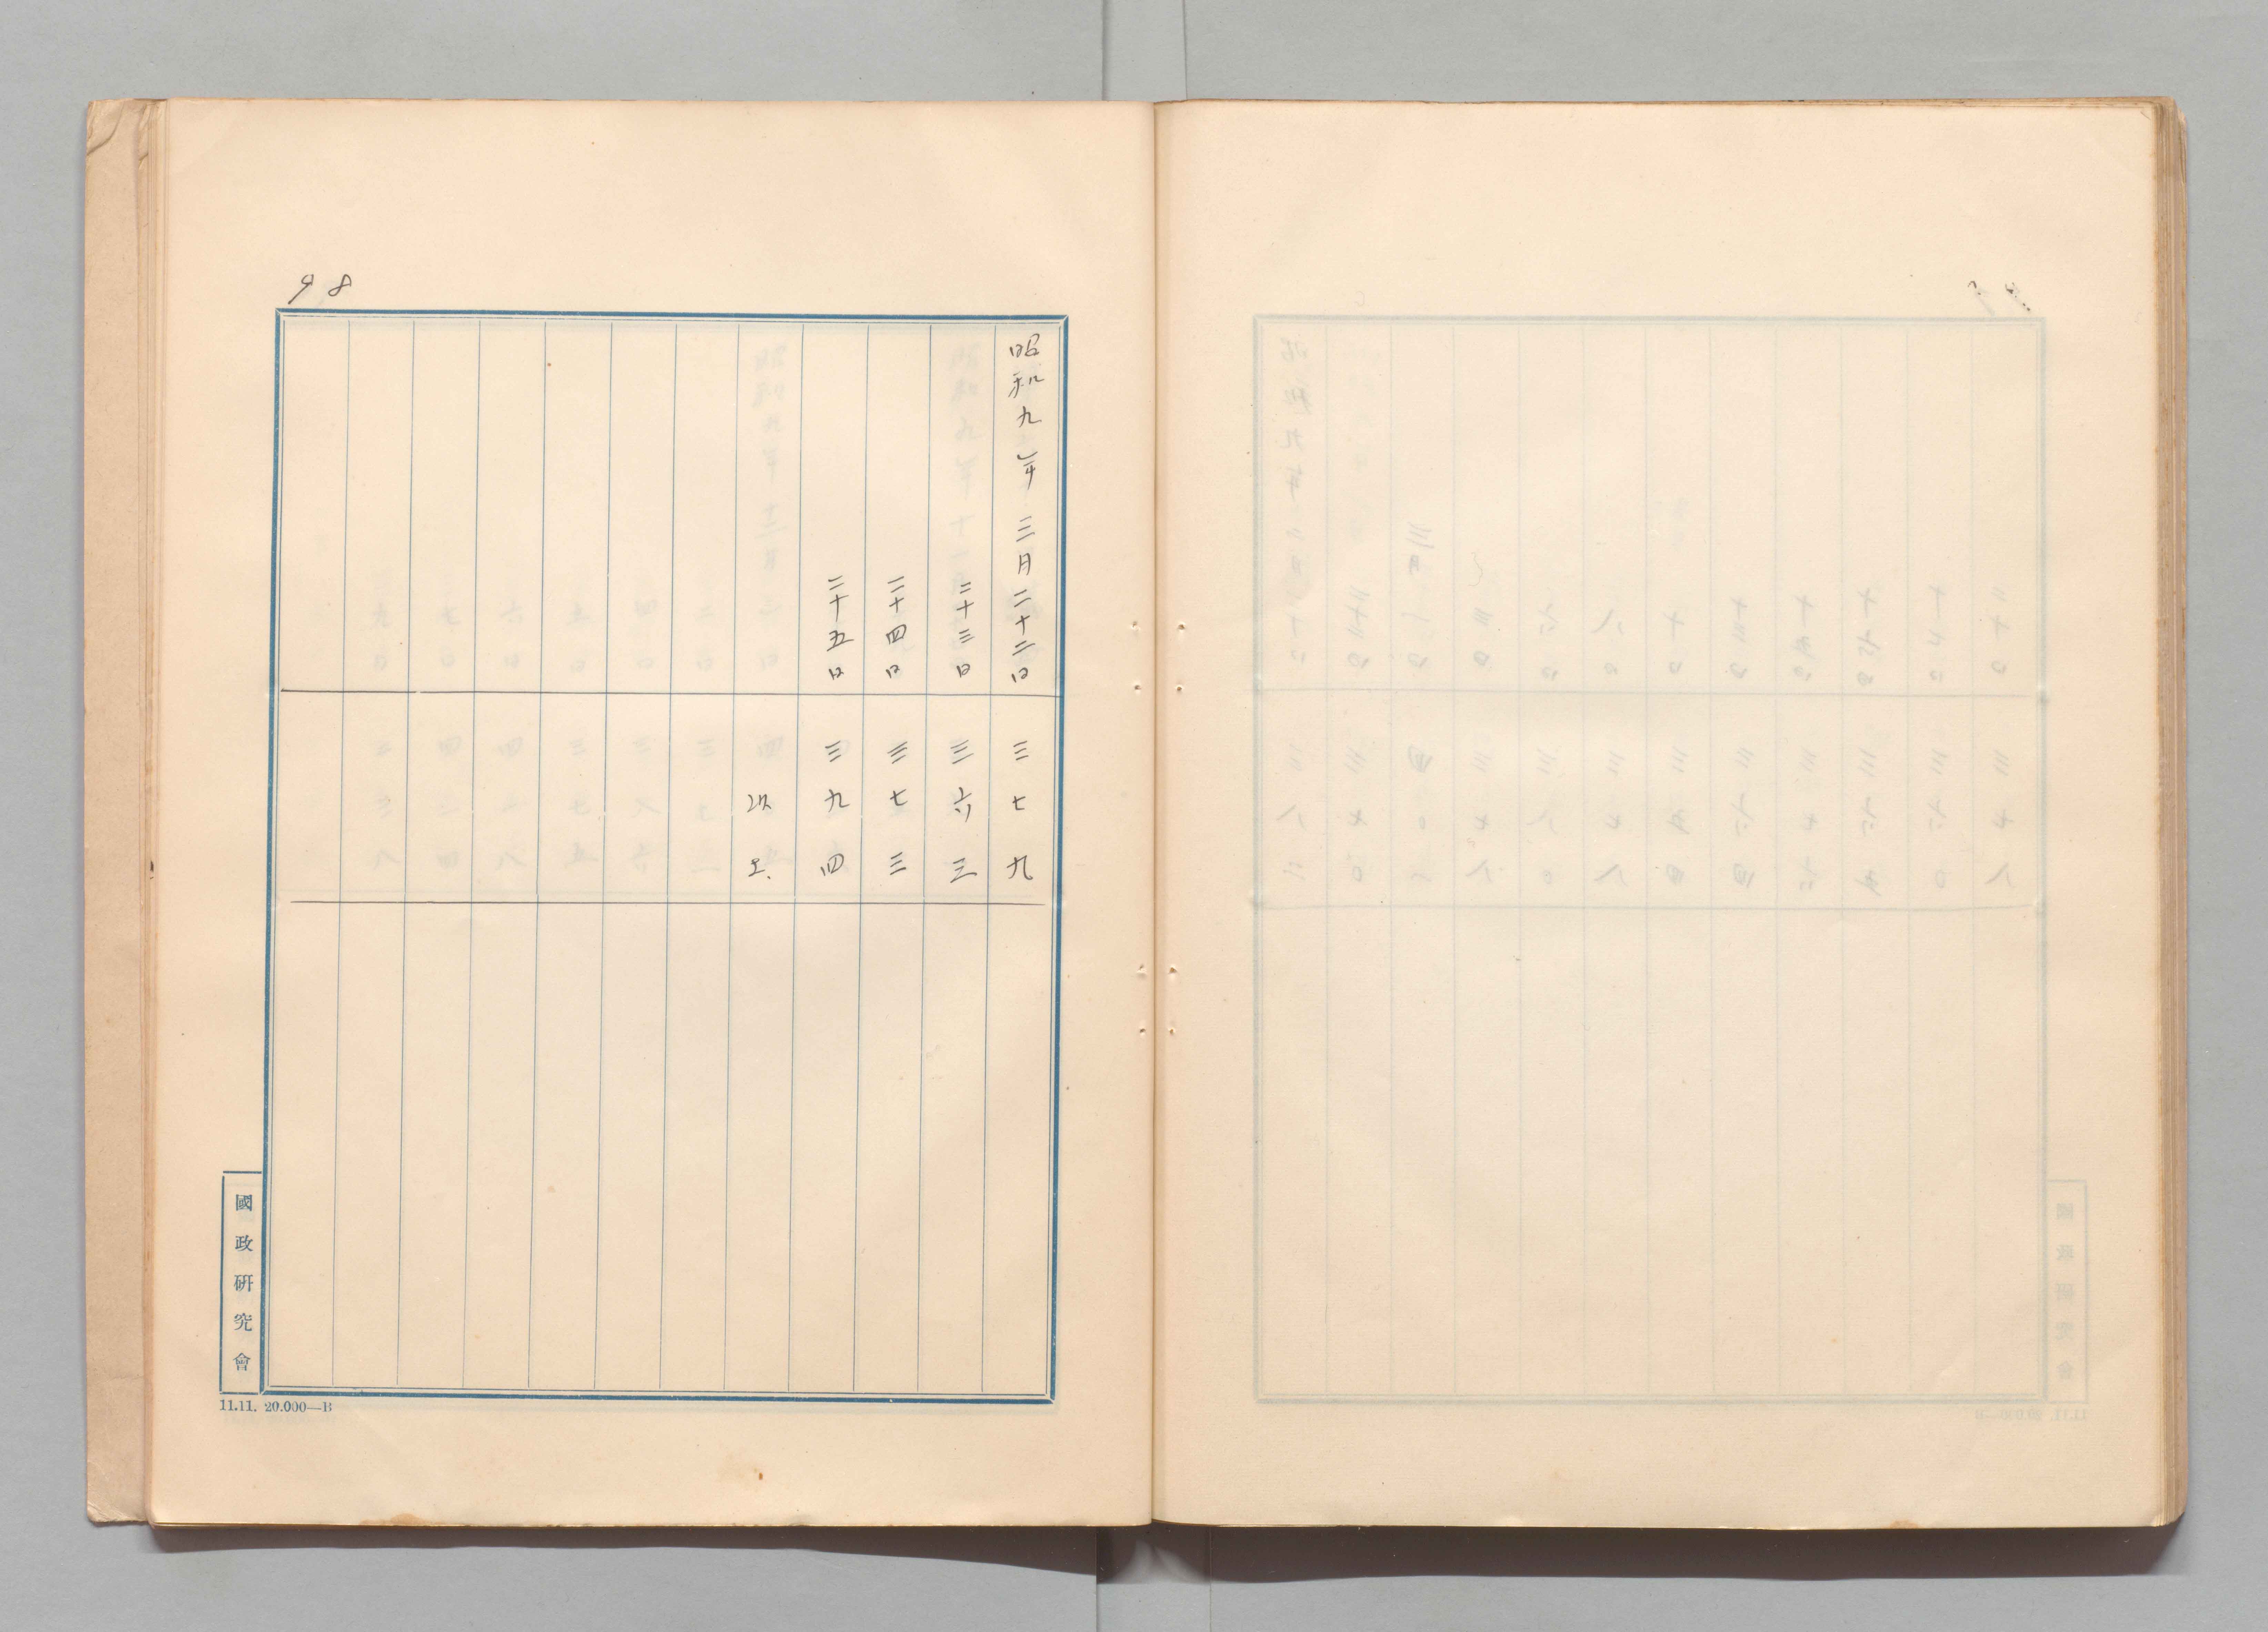 98
昭和九年三月二十二日 三七九
二十三日 三六三
二十四日 三七三
二十五日 三九四
以上
國政研究會
11.11. 20.000—B